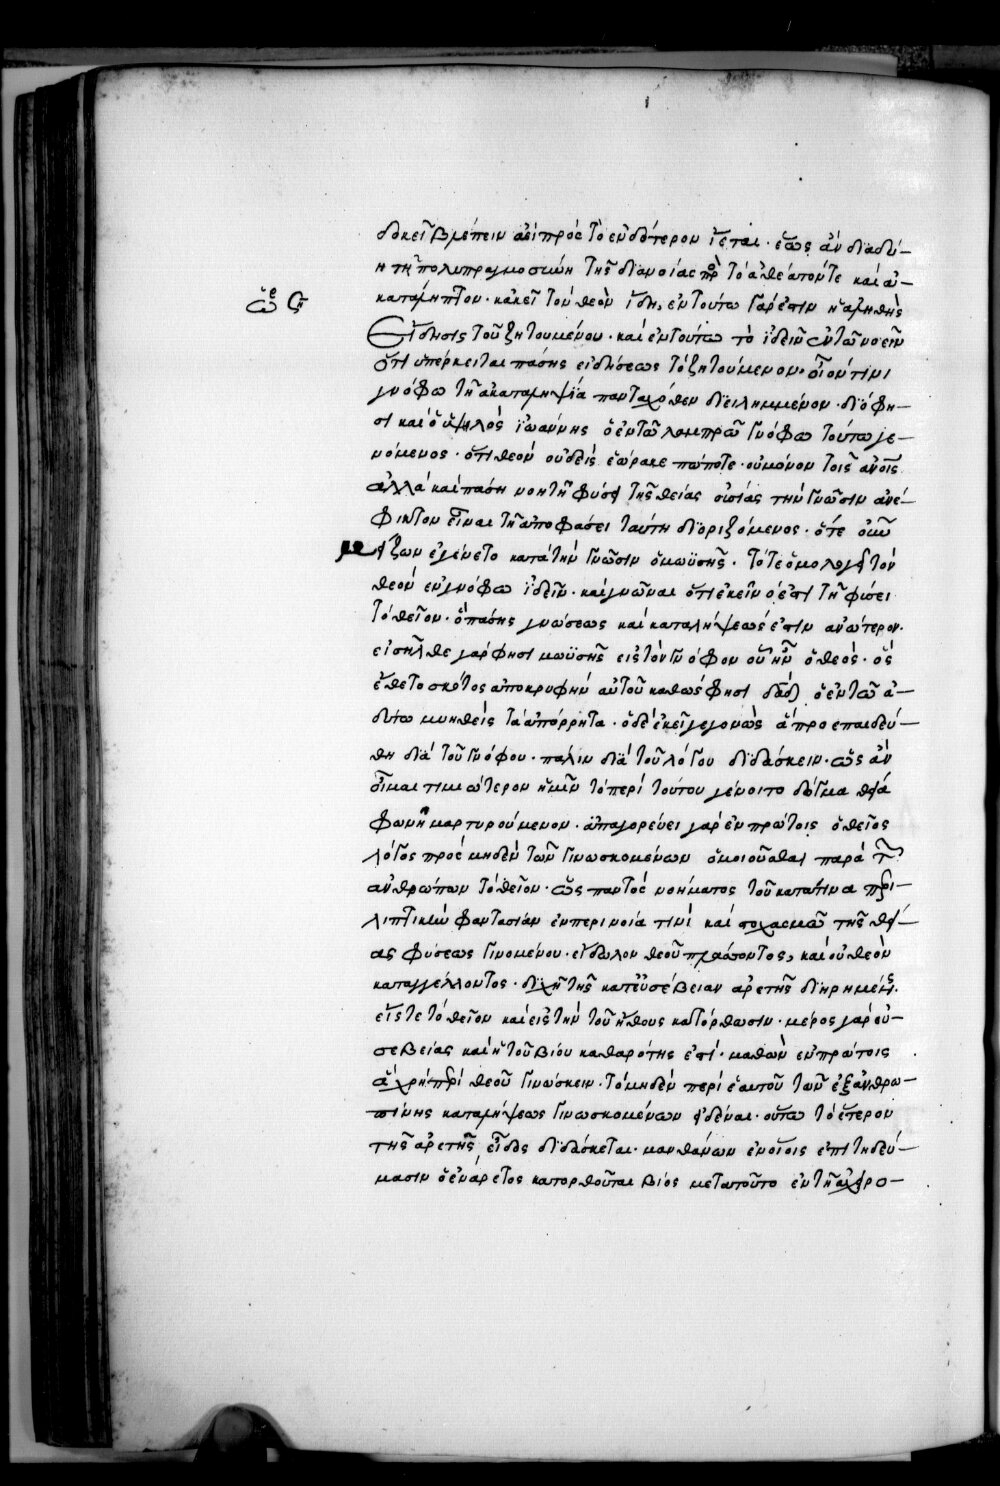 δοκεῖ βλέπειν ἀεὶ πρὸς τὸ ἐνδότερον ἵεται· ἕως ἂν διαδύ–
η τῇ πολυπραγμοσύνῃ τῆς διανοίας πρὸς τὸ ἀθέατόν τε καὶ ἀ–
κατάληπτον· κἀκεῖ τὸν θεὸν ἴδῃ, ἐν τούτω γάρ ἐστιν ἡ ἀληθὴς
ὡρ ζῆ
Εἴδησις τοῦ ζητουμένου· καὶ ἐν τούτω τὸ ἰδεῖν ἐν τῶ νοεῖν
ὅτι ὑπέρκειται πάσης εἰδήσεως τὸ ζητούμενον· οἷόν τινι
γνόφω τῇ ἀκαταληψία πανταχόθεν διειλημμένον· διό φη–
σι καὶ ὁ ὑψηλὸς ἰωάννης ὁ ἐν τῶ λαμπρῶ γνόφω τούτω γε–
νόμενος· ὅτι θεὸν οὐδεὶς ἑώρακε πώποτε· οὐ μόνον τοῖς ἀνοῖς
ἀλλὰ καὶ πάση νοητῇ φύσει τῆς θείας οὐσίας τὴν γνῶσιν ἀνέ–
φικτον εἶναι τῇ ἀποφάσει ταύτη διοριζόμενος· ὅτε οὖν
μείζων ἐγένετο κατὰ τὴν γνῶσιν ὁ μωϋσῆς· τότε ὁμολογεῖ τὸν
θεὸν ἐν γνόφω ἰδεῖν· καὶ γνῶναι ὅτι ἐκεῖνό ἐστι τῇ φύσει
τὸ θεῖον· ὃ πάσης γνώσεως καὶ καταλήψεώς ἐστιν ἀνώτερον·
εἰσῆλθε γάρ φησι μωϋσῆς εἰς τὸν γνόφον οὗ ἦν ὁ θεός· ὃς
ἔθετο σκότος ἀποκρυφὴν αὐτοῦ καθώς φησι δαδ ὁ ἐν τῶ ἀ–
δύτω μυηθεὶς τὰ ἀπόρρητα· ὁ δὲ ἐκεῖ γεγονὼς ἃ προεπαιδεύ–
θη διὰ τοῦ γνόφου· πάλιν διὰ τοῦ λόγου διδάσκειν· ὡς ἂν
οἶμαι τιμιώτερον ἡμῖν τὸ περὶ τούτου γένοιτο δόγμα θεία
φωνῇ μαρτυρούμενον· ἀπαγορεύει γὰρ ἐν πρώτοις ὁ θεῖος
λόγος πρὸς μηδὲν τῶν γινωσκομένων ὁμοιοῦσθαι παρὰ τῶν
ἀνθρώπων τὸ θεῖον· ὡς παντὸς νοήματος τοῦ κατά τινα περι–
λιπτικὴν φαντασίαν ἐν περινοία τινὶ καὶ στοχασμῶ τῆς θεί–
ας φύσεως γινομένου· εἴδωλον θεοῦ πλάσσοντος, καὶ οὐ θεὸν
καταγγέλλοντος· διχῆ τῆς κατ' εὐσέβειαν ἀρετῆς διηρημένης·
εἴς τε τὸ θεῖον καὶ εἰς τὴν τοῦ ἤθους κατόρθωσιν· μέρος γὰρ εὐ–
σεβείας καὶ ἡ τοῦ βίου καθαρότης ἐστί· μαθὼν ἐν πρώτοις
ἃ χρὴ περὶ θεοῦ γινώσκειν· τὸ μηδὲν περὶ ἑαυτοῦ τῶν ἐξ ἀνθρω–
πίνης καταλήψεως γινωσκομένων εἰδέναι· οὕτω τὸ ἕτερον
τῆς ἀρετῆς εἶδος διδάσκεται· μανθάνων ἐν οἵοις ἐπιτηδεύ–
μασιν ὁ ἐνάρετος κατορθοῦται βίος μετὰ τοῦτο ἐν τῇ ἀχειρο–